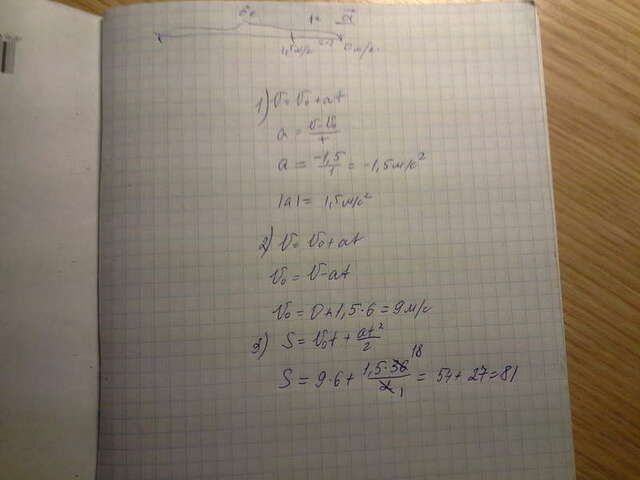 1,5 м/с 0 м/с
1) v = v₀ + at
a = (v - v₀)/t
a = -1,5/1 = -1,5 м/с²
|a| = 1,5 м/с²
2) v = v₀ + at
v₀ = v - at
v₀ = 0 + 1,5·6 = 9 м/с
3) S = v₀t + at²/2
S = 9·6 + 1,5·36/2 18 1 = 54 + 27 = 81